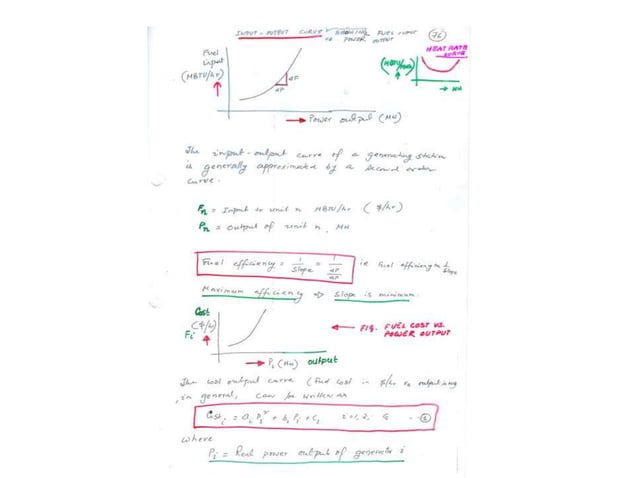 INPUT-OUTPUT CURVE SHOWING FUEL INPUT
VS POWER OUTPUT
76
Fuel
input
(MBTU/hr)
ΔF
ΔP
Power output (MW)
HEAT RATE
CURVE
MW
The input-output curve of a generating station
is generally approximated by a second order
curve.
Fn = Input to unit n MBTU/hr ( $/hr)
Pn = Output of unit n, MW
Fuel efficiency = 1/Slope = 1/(ΔF/ΔP) ie Fuel efficiency ∝ 1/Slope
Maximum efficiency ⇒ Slope is minimum.
Cost
($/h)
Fi
Pi (MW) output
FIG. FUEL COST VS.
POWER OUTPUT
The cost output curve (Fuel cost in $/hr vs output in MW)
, in general, can be written as
Costi = ai Pi² + bi Pi + ci i=1,2,
where
Pi = Real power output of generator i